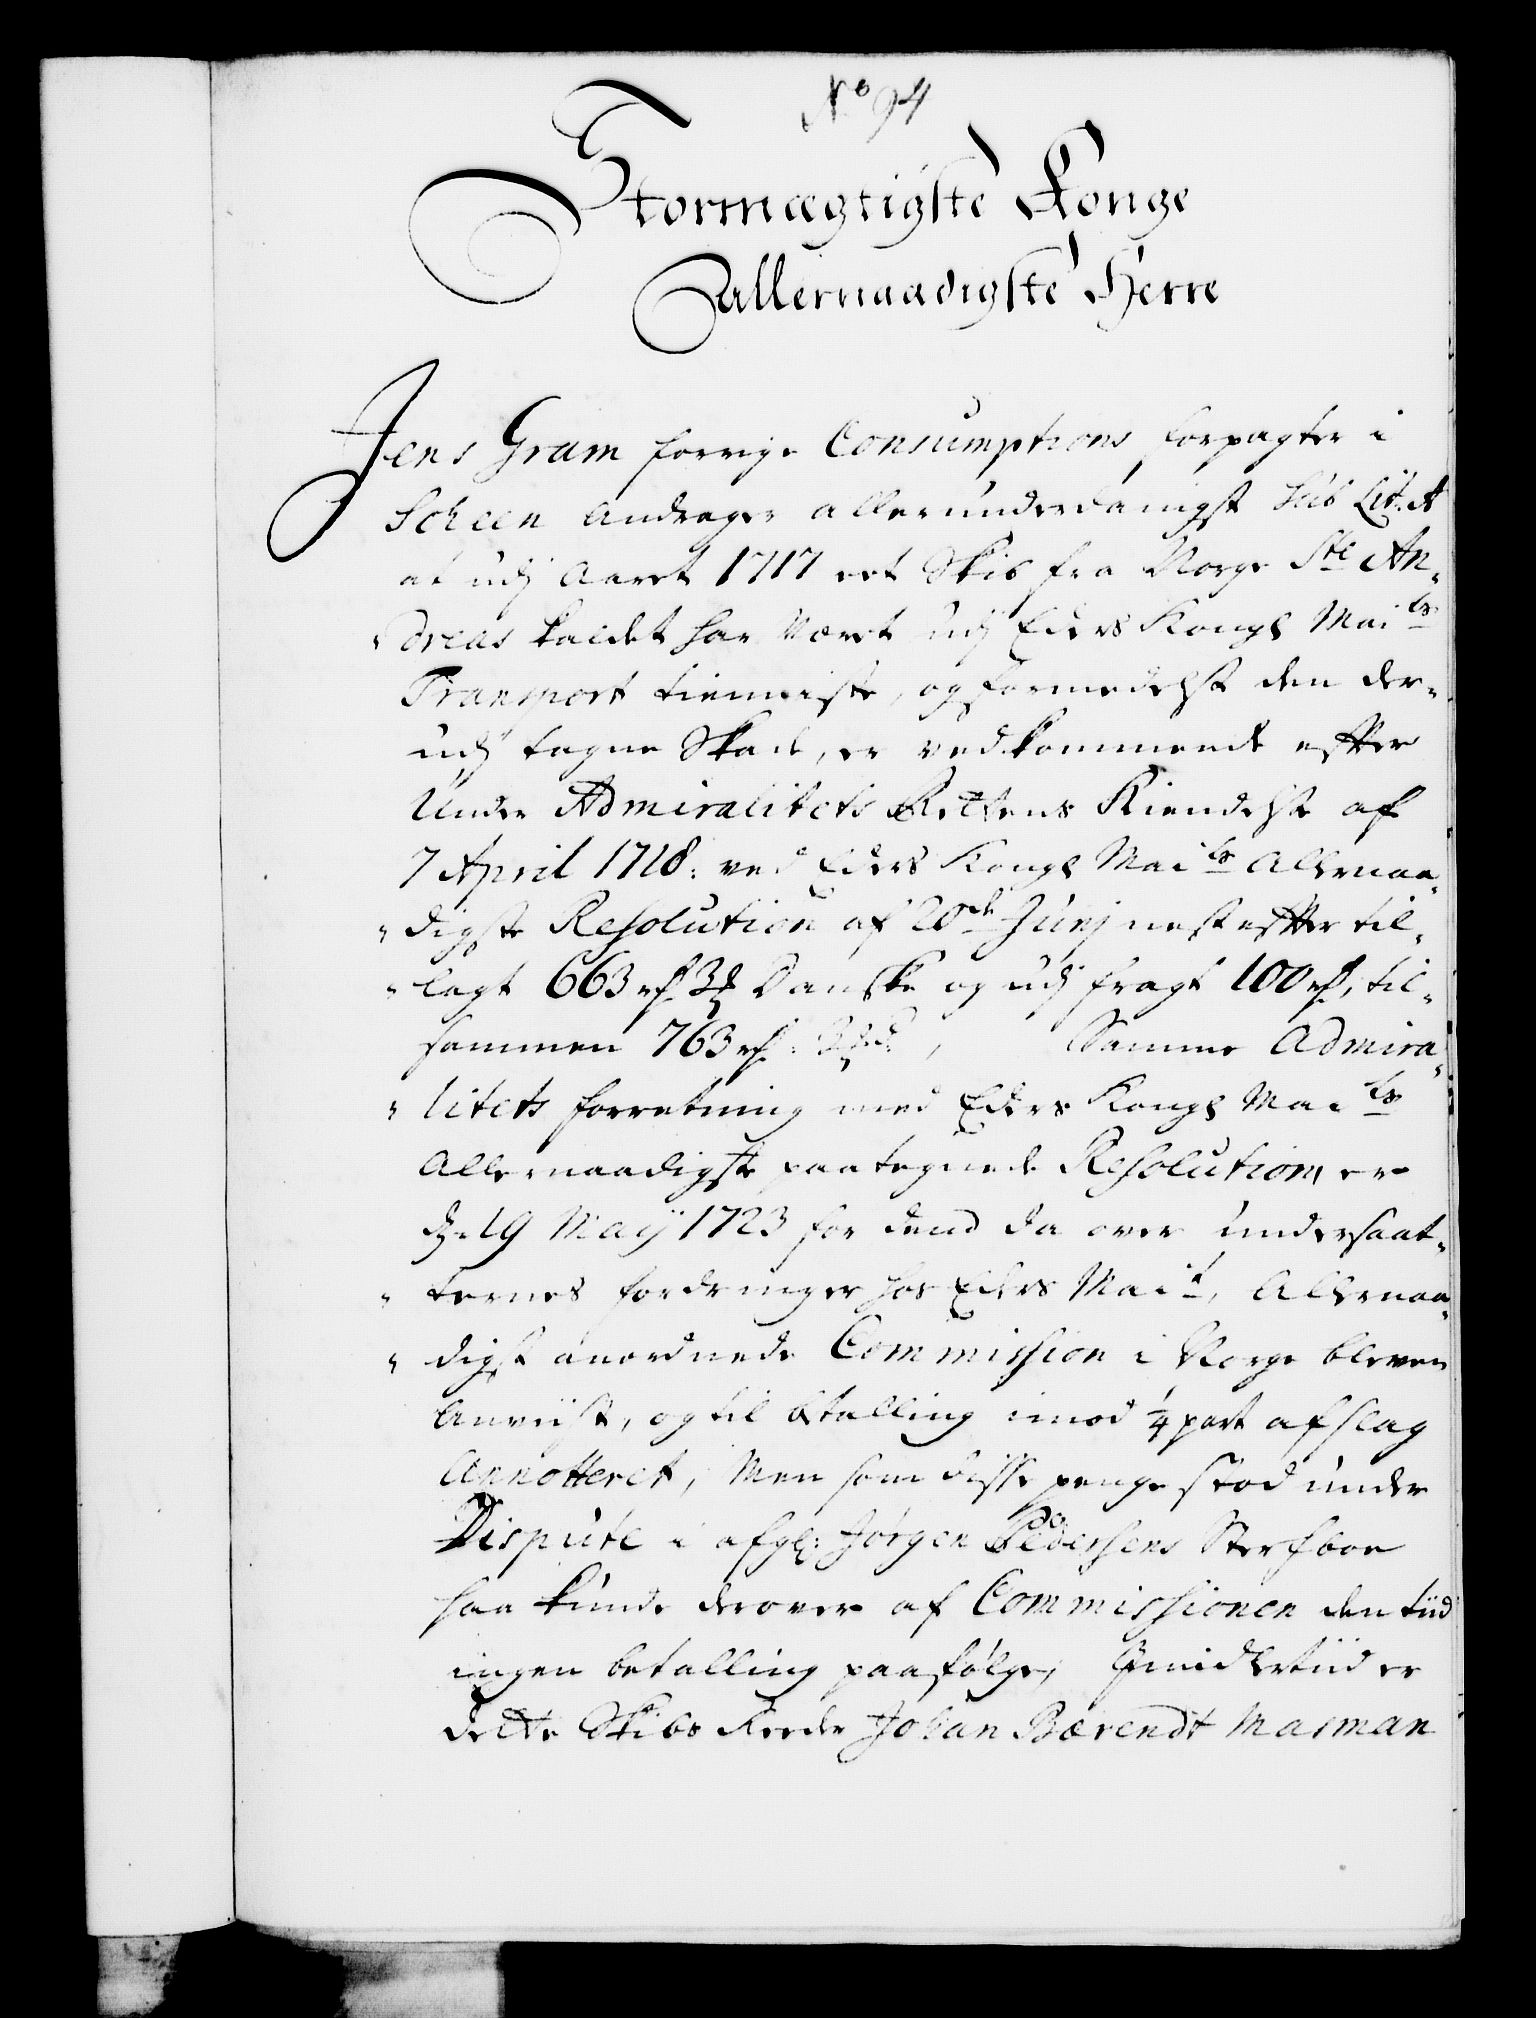 No 94
Stormægtigste Konge
Allernaadigste Herre
Jens Gram forrige Consumptions forpagter i
Scheen Andrager allerunderdanigst sub Lit: A
at udj Aaret 1717 eet Skib fra Norge Ste An-
-dreas kaldet har Været udj Eders Kongl Maits
Transport tienniste, og formedelst den der-
udj tagne Skade, er vedkommende effter
Under Admiralitets Rettens Kiendelse af
7 April 1718: ved Eders Kongl Maits Allernaa-
-digste Resolution af 20de Junj nest effter til-
-lagt 663 rd 3 ß Danske og udj fragt 100 rd, til-
sammen 763 rd: 3 ß, Samme Admira-
-litets forretning med Eders Kongl Maits
Allernaadigste paategnede Resolution, er
d: 19 Maij 1723 for dend da over undersaat-
-ternes fordringer hos Eders Mait, Allernaa-
-digst anordnede Commission i Norge bleven
Anviist, og til betalling imod ¼ part afslag
Annotteret, Men som disse penge stod under
Dispute i afgl: Jørgen Pedersens Sterfboe
saa kunde derover af Commissionen den tiid
ingen betalling paafølge, Imidlertiid er
dette Skibs Reeder Johan Bærendt Masman